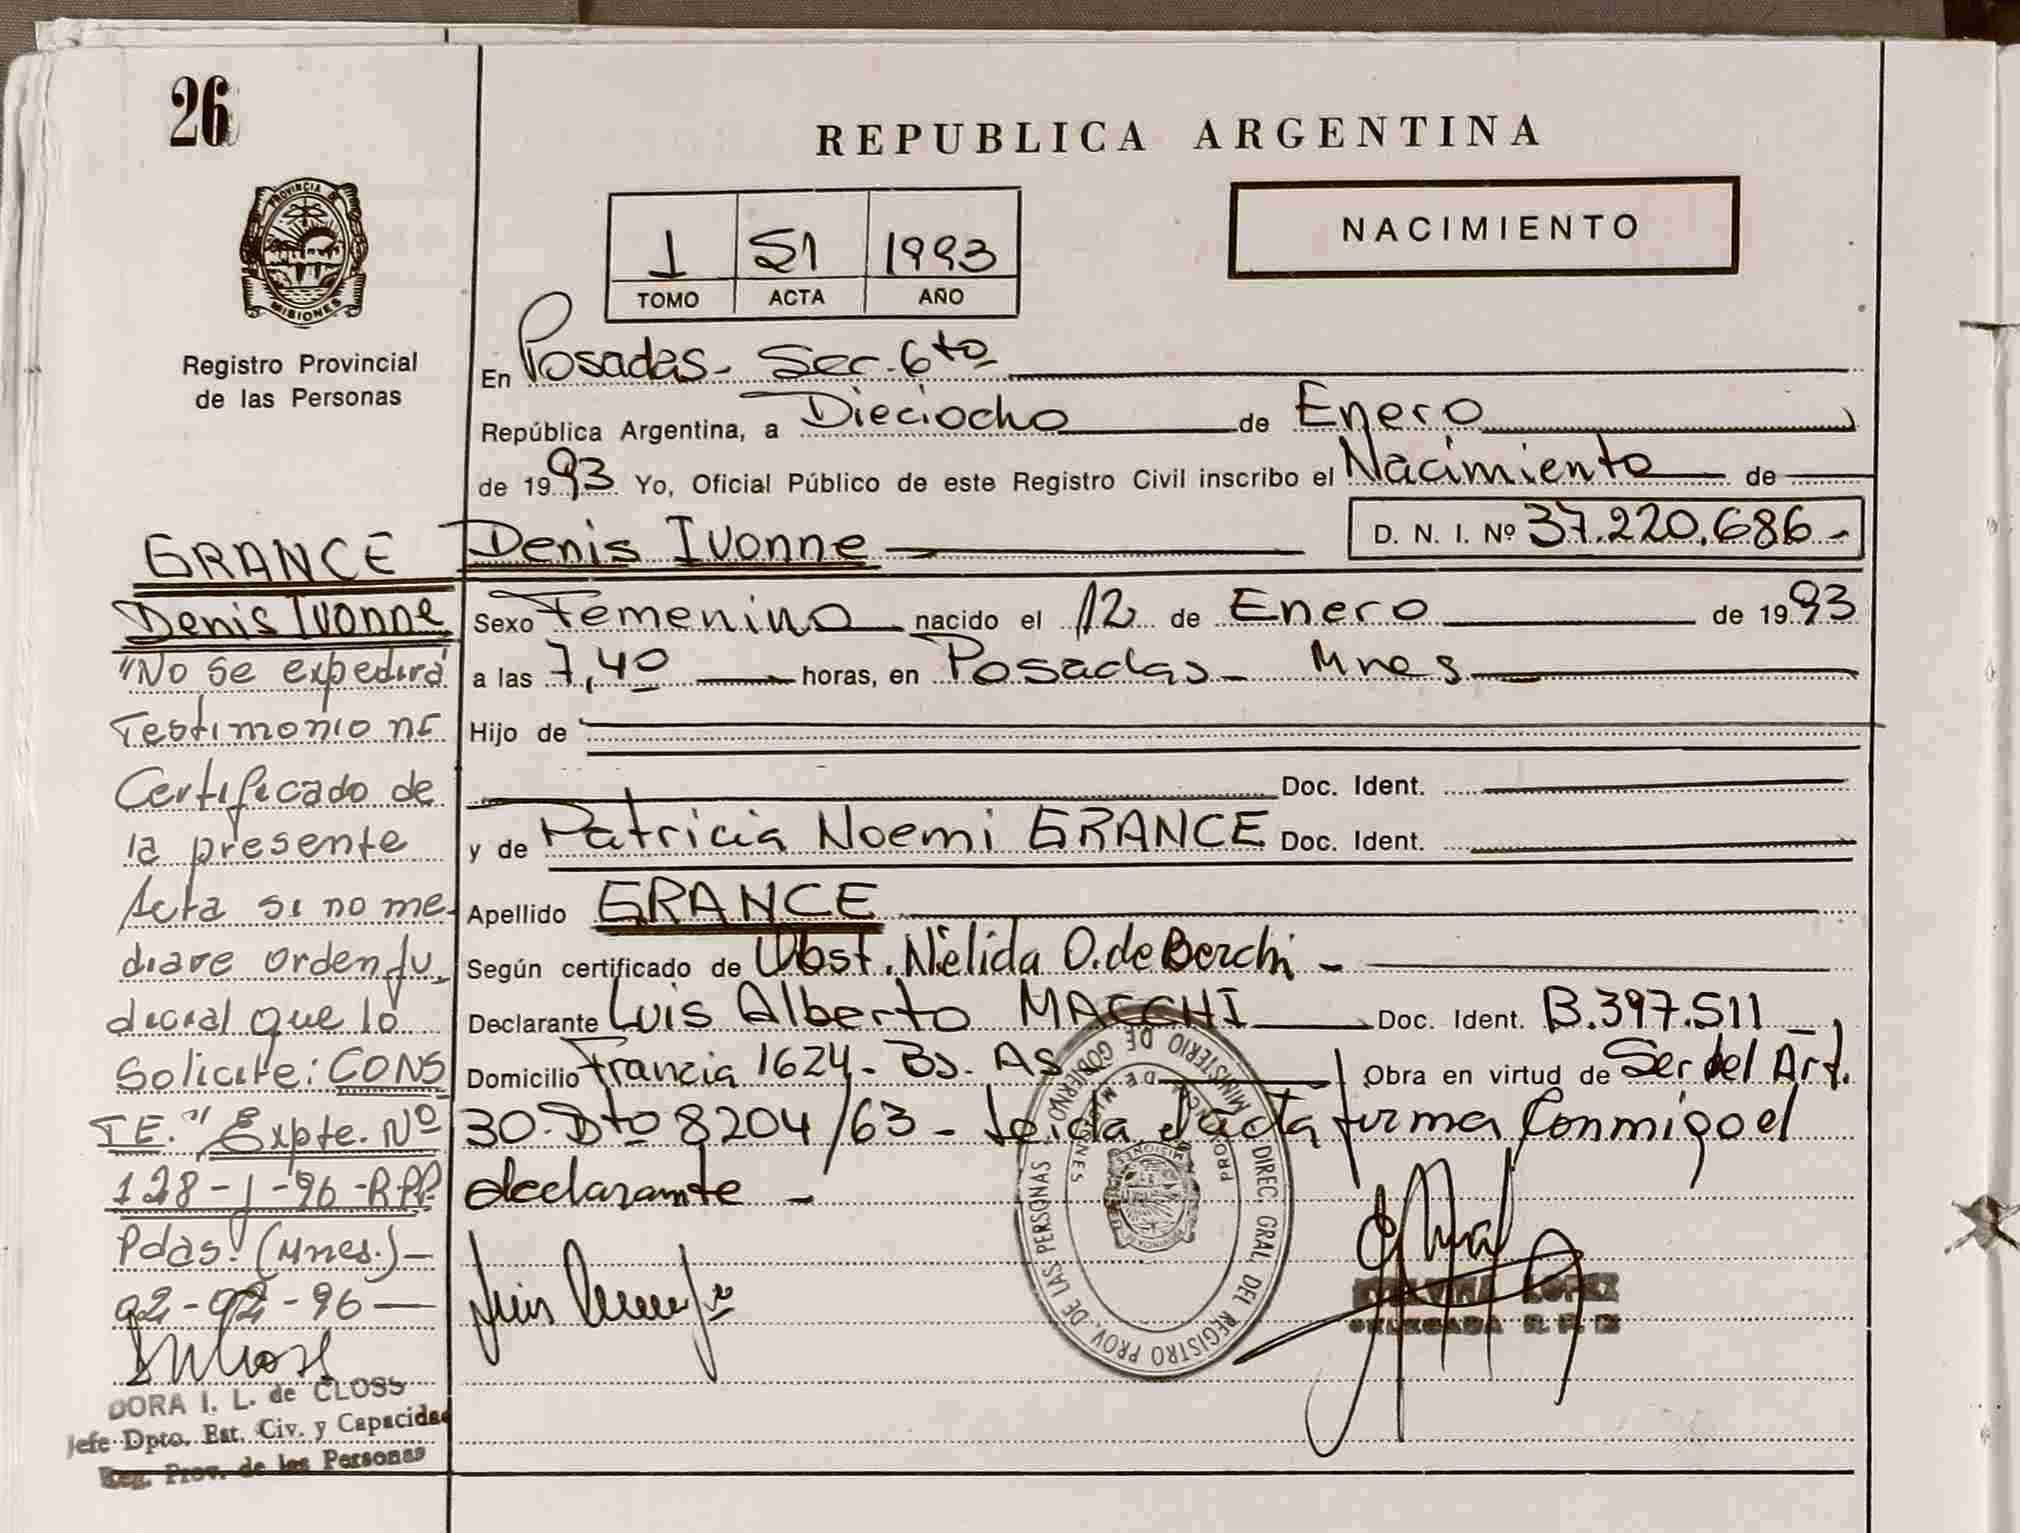 26
PROVINCIA DE
MISIONES
Registro Provincial
de las Personas
REPUBLICA ARGENTINA
NACIMIENTO
1 51 1993
TOMO ACTA AÑO
En Posadas - Sec. 6to
República Argentina, a Dieciocho de Enero
de 1993 Yo, Oficial Público de este Registro Civil inscribo el Nacimiento de
Denis Ivonne D. N. I. Nº 37.220.686-
Sexo Femenino nacido el 12 de Enero de 1993
a las 7,40 horas, en Posadas - Mnes
Hijo de
Doc. Ident.
y de Patricia Noemi GRANCE Doc. Ident.
Apellido GRANCE
Según certificado de Obst. Nélida O. de Berchi -
Declarante Luis Alberto MACCHI Doc. Ident. B.397.511 -
Domicilio Francia 1624 - Bs. As Obra en virtud de Ser del Art.
30- Dto 8204/63 - Leida el acta firma Conmigo el
declarante -
GRANCE
Denis Ivonne
"No se expedirá
Testimonio ni
Certificado de
la presente
Acta si no me
diare orden Ju
dicial que lo
Solicite: CONS
TE." Expte. Nº
128-J-96-RPP
Pdas. (Mnes.)-
02-02-96-
DORA I. L. de CLOSS
Jefe Dpto. Est. Civ. y Capacidad
Reg. Prov. de las Personas
Luis
MINISTERIO DE GOBIERNO
DIREC. GRAL. DEL REGISTRO PROV. DE LAS PERSONAS
PROVINCIA DE MISIONES
LOPEZ
DELEGADA R. P. P.